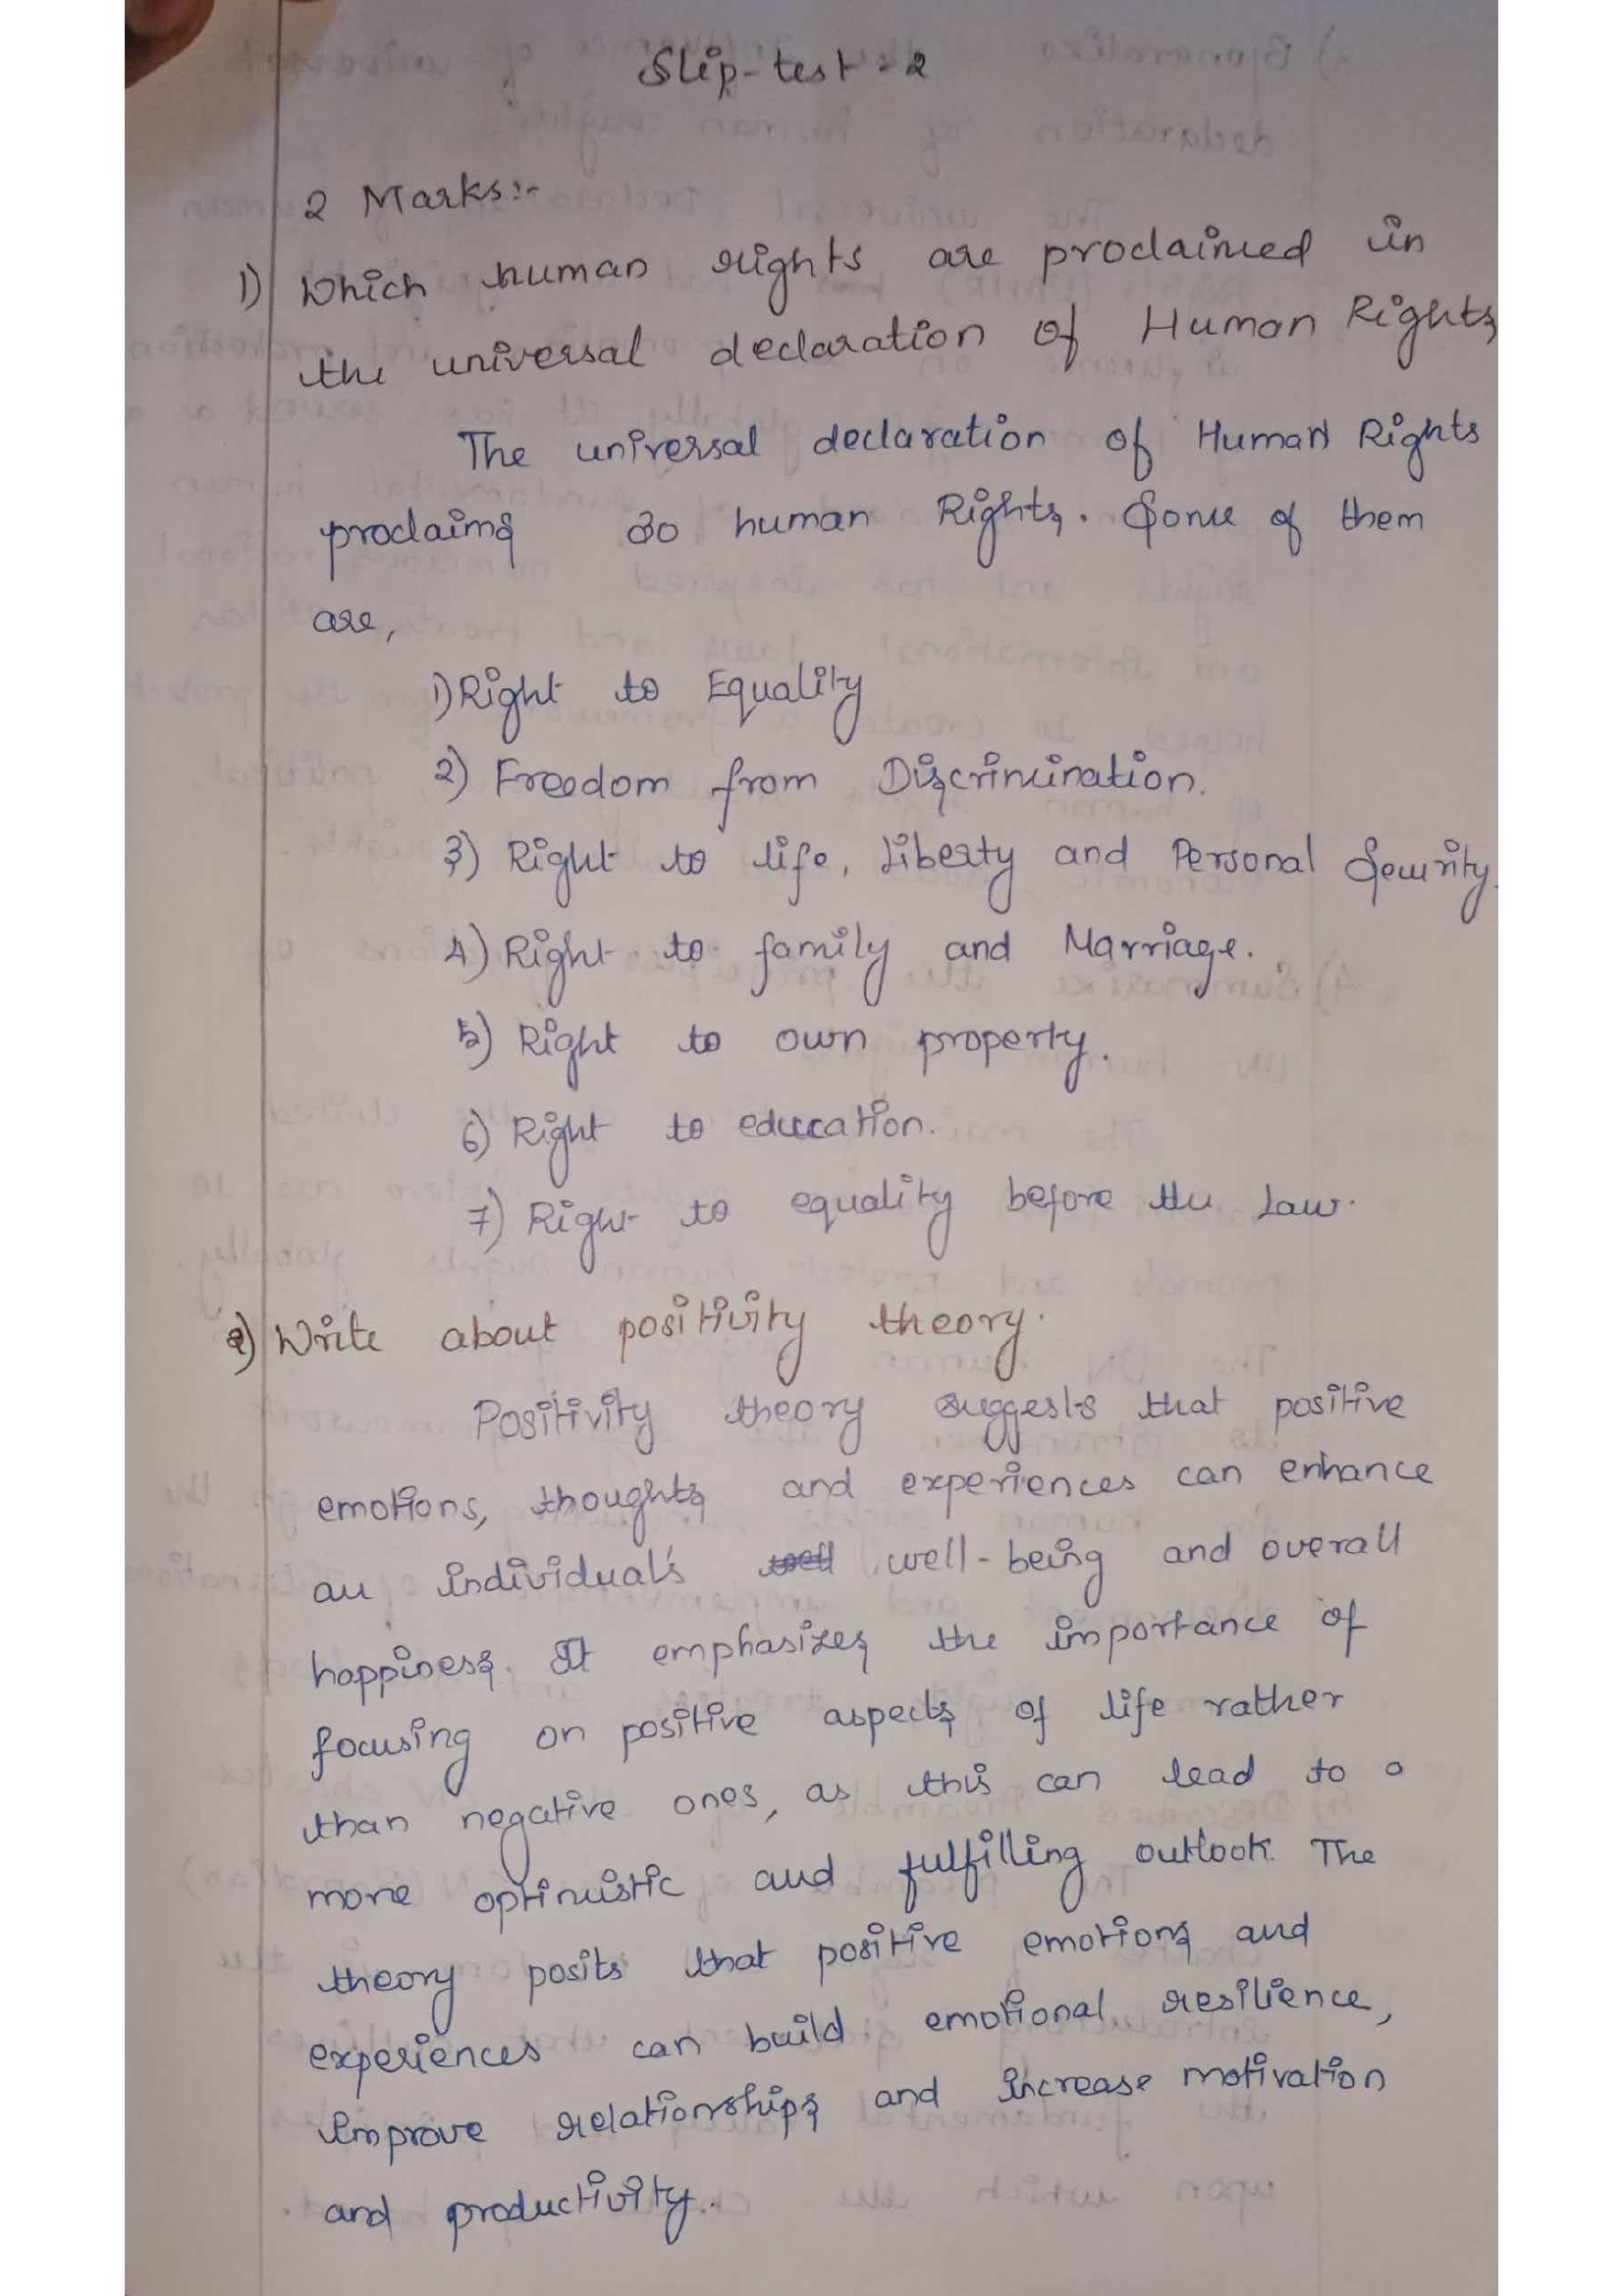 Slip-test-2
2 Marks:-
1) Which human rights are proclaimed in
the universal declaration of Human Rights
The universal declaration of Human Rights
proclaims 30 human Rights. Some of them
are,
1) Right to Equality
2) Freedom from Discrimination.
3) Right to life, liberty and Personal Security.
4) Right to family and Marriage.
5) Right to own property.
6) Right to education.
7) Right to equality before the Law.
2) Write about positivity theory.
Positivity theory suggests that positive
emotions, thoughts and experiences can enhance
an individual's well-being and overall
happiness. It emphasizes the importance of
focusing on positive aspects of life rather
than negative ones, as this can lead to a
more optimistic and fulfilling outlook. The
theory posits that positive emotions and
experiences can build emotional resilience,
improve relationships and increase motivation
and productivity.